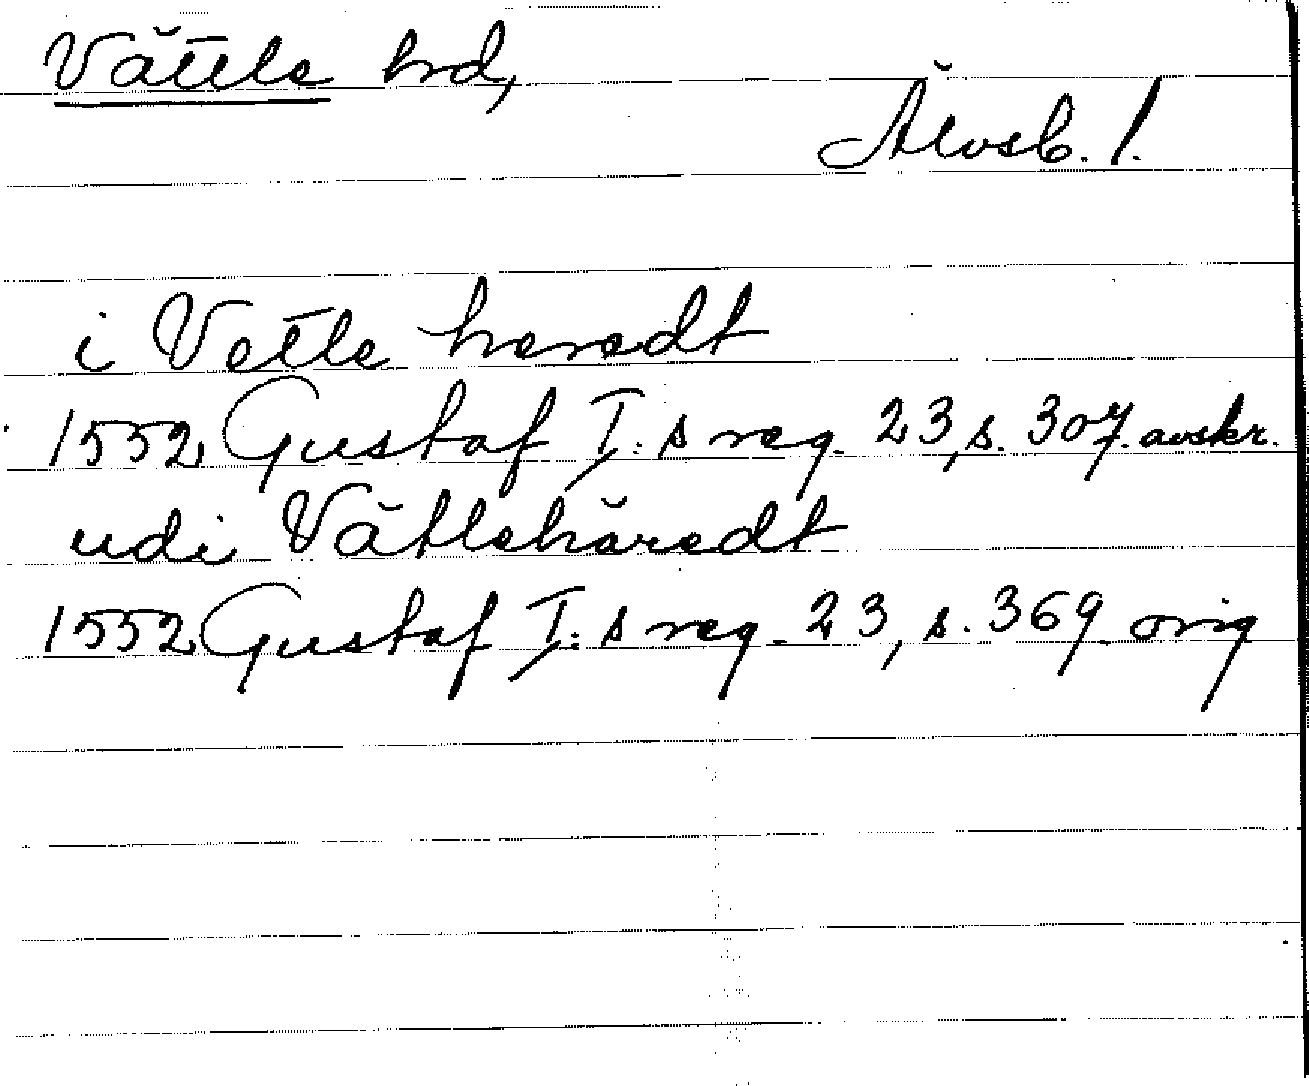 Vättle hrd,
Älvsb. l.
i Vetle heredt
1552 Gustaf I:s reg. 23, s. 307. avskr.
udi Vätlehäredt
1552 Gustaf I:s reg. 23, s. 369. orig